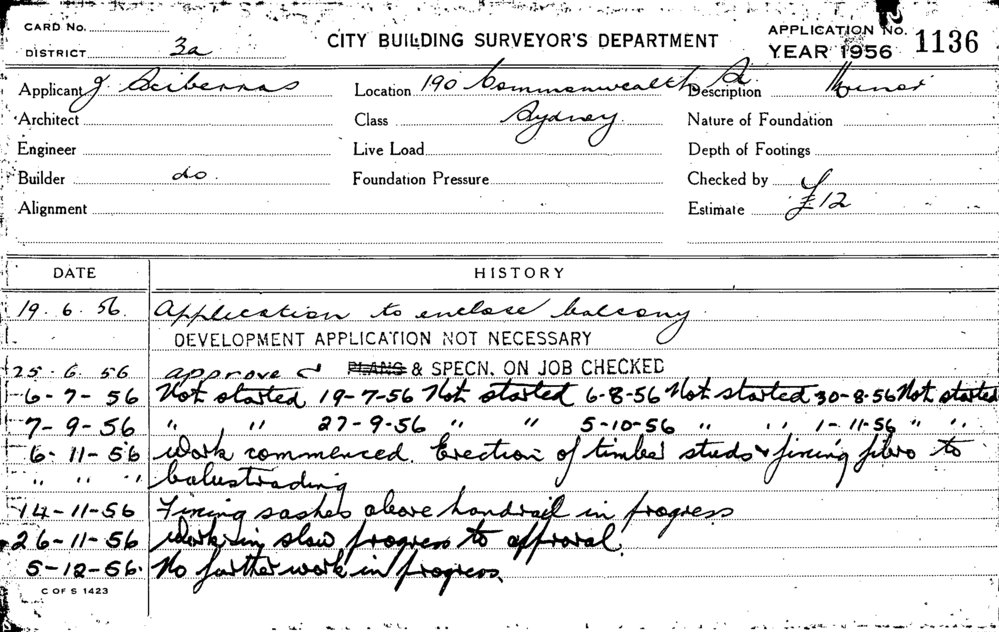 CARD No.
DISTRICT 3a
CITY BUILDING SURVEYOR'S DEPARTMENT
APPLICATION No. 1136
YEAR 1956
Applicant J. Sciberras Location 190 Commonwealth St. Description Minor
Architect Class Sydney Nature of Foundation
Engineer Live Load Depth of Footings
Builder do. Foundation Pressure Checked by
Alignment Estimate £12
DATE HISTORY
19.6.56. Application to enclose balcony.
DEVELOPMENT APPLICATION NOT NECESSARY
25.6.56 approved PLANS & SPECN. ON JOB CHECKED
6-7-56 Not started 19-7-56 Not started 6-8-56 Not started 30-8-56 Not started
7-9-56 " " 27-9-56 " " 5-10-56 " " 1-11-56 " "
6-11-56 Work commenced. Erection of timber studs & fixing fibro to
" " " balustrading
14-11-56 Fixing sashes above handrail in progress
26-11-56 Work in slow progress to approval.
5-12-56. No further work in progress.
C OF S 1423